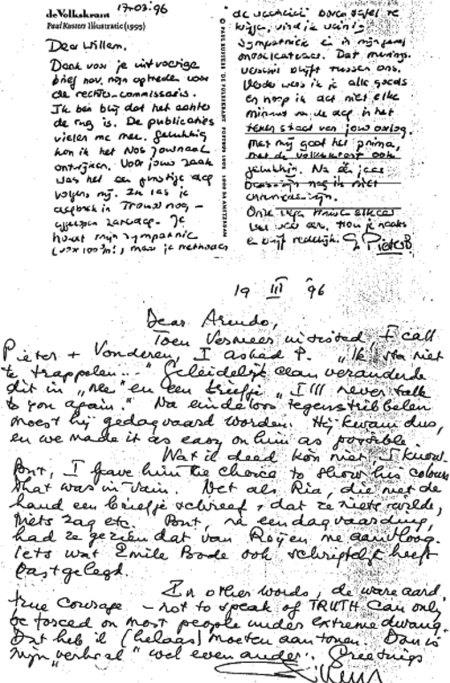 17-03-96
de Volkskrant
Paul Kusters Illustratie (1995)
Dear Willem,
Dank voor je uitvoerige
brief nov. mijn optreden voor
de rechter-commissaris.
Ik ben blij dat het achter
de rug is. De publicaties
vielen me mee. Gelukkig
kon ik het NOS Journaal
ontwijken. Voor jouw zaak
was het een gunstige dag
volgens mij. Ik las je
dagboek in Trouw nog –
Je
houdt mijn sympathie
(voor 100%!), maar je methodes
wijze, vind je weinig
sympathiek en in mijn geval
Dat menings-
verschil blijft tussen ons.
Verder wens ik je alle goeds
en hoop ik dat niet elke
minuut van de dag in het
teken staat van jouw oorlog.
Met mij gaat het prima,
met de Volkskrant ook
gelukkig. Na de jaar
nog niet
Onze
wel weer eens. Hou je haaks
en blijf redelijk. Gr. Pieter B.
19 III '96
Dear Arendo,
Toen Vermeer insisted, I call
Pieter + Vonderen, I asked P. "Ik sta niet
te trappelen..." Geleidelijk aan veranderde
dit in "nee" en een briefje "I'll never talk
to you again." Na eindeloos tegenstribbelen
moest hij gedagvaard worden. Hij kwam dus,
en we made it as easy on him as possible
Wat ik deed kon niet, I know.
Pont, I gave him the choice to show his colours
That was in vain. Net als Ria, die met de
hand een briefje schreef, dat ze niets wilde,
niets zag etc. Pont, na een dagvaarding,
had ze gezien dat van Roijen me aanvloog.
Iets wat Emile Bode ook schriftelijk heeft
vastgelegd.
In other words, de ware aard,
true courage – not to speak of TRUTH can only
be forced on most people under extreme dwang.
Dat heb ik (helaas) moeten aantonen. Dan is
mijn "verhaal" wel even ander. Greetings
Willem